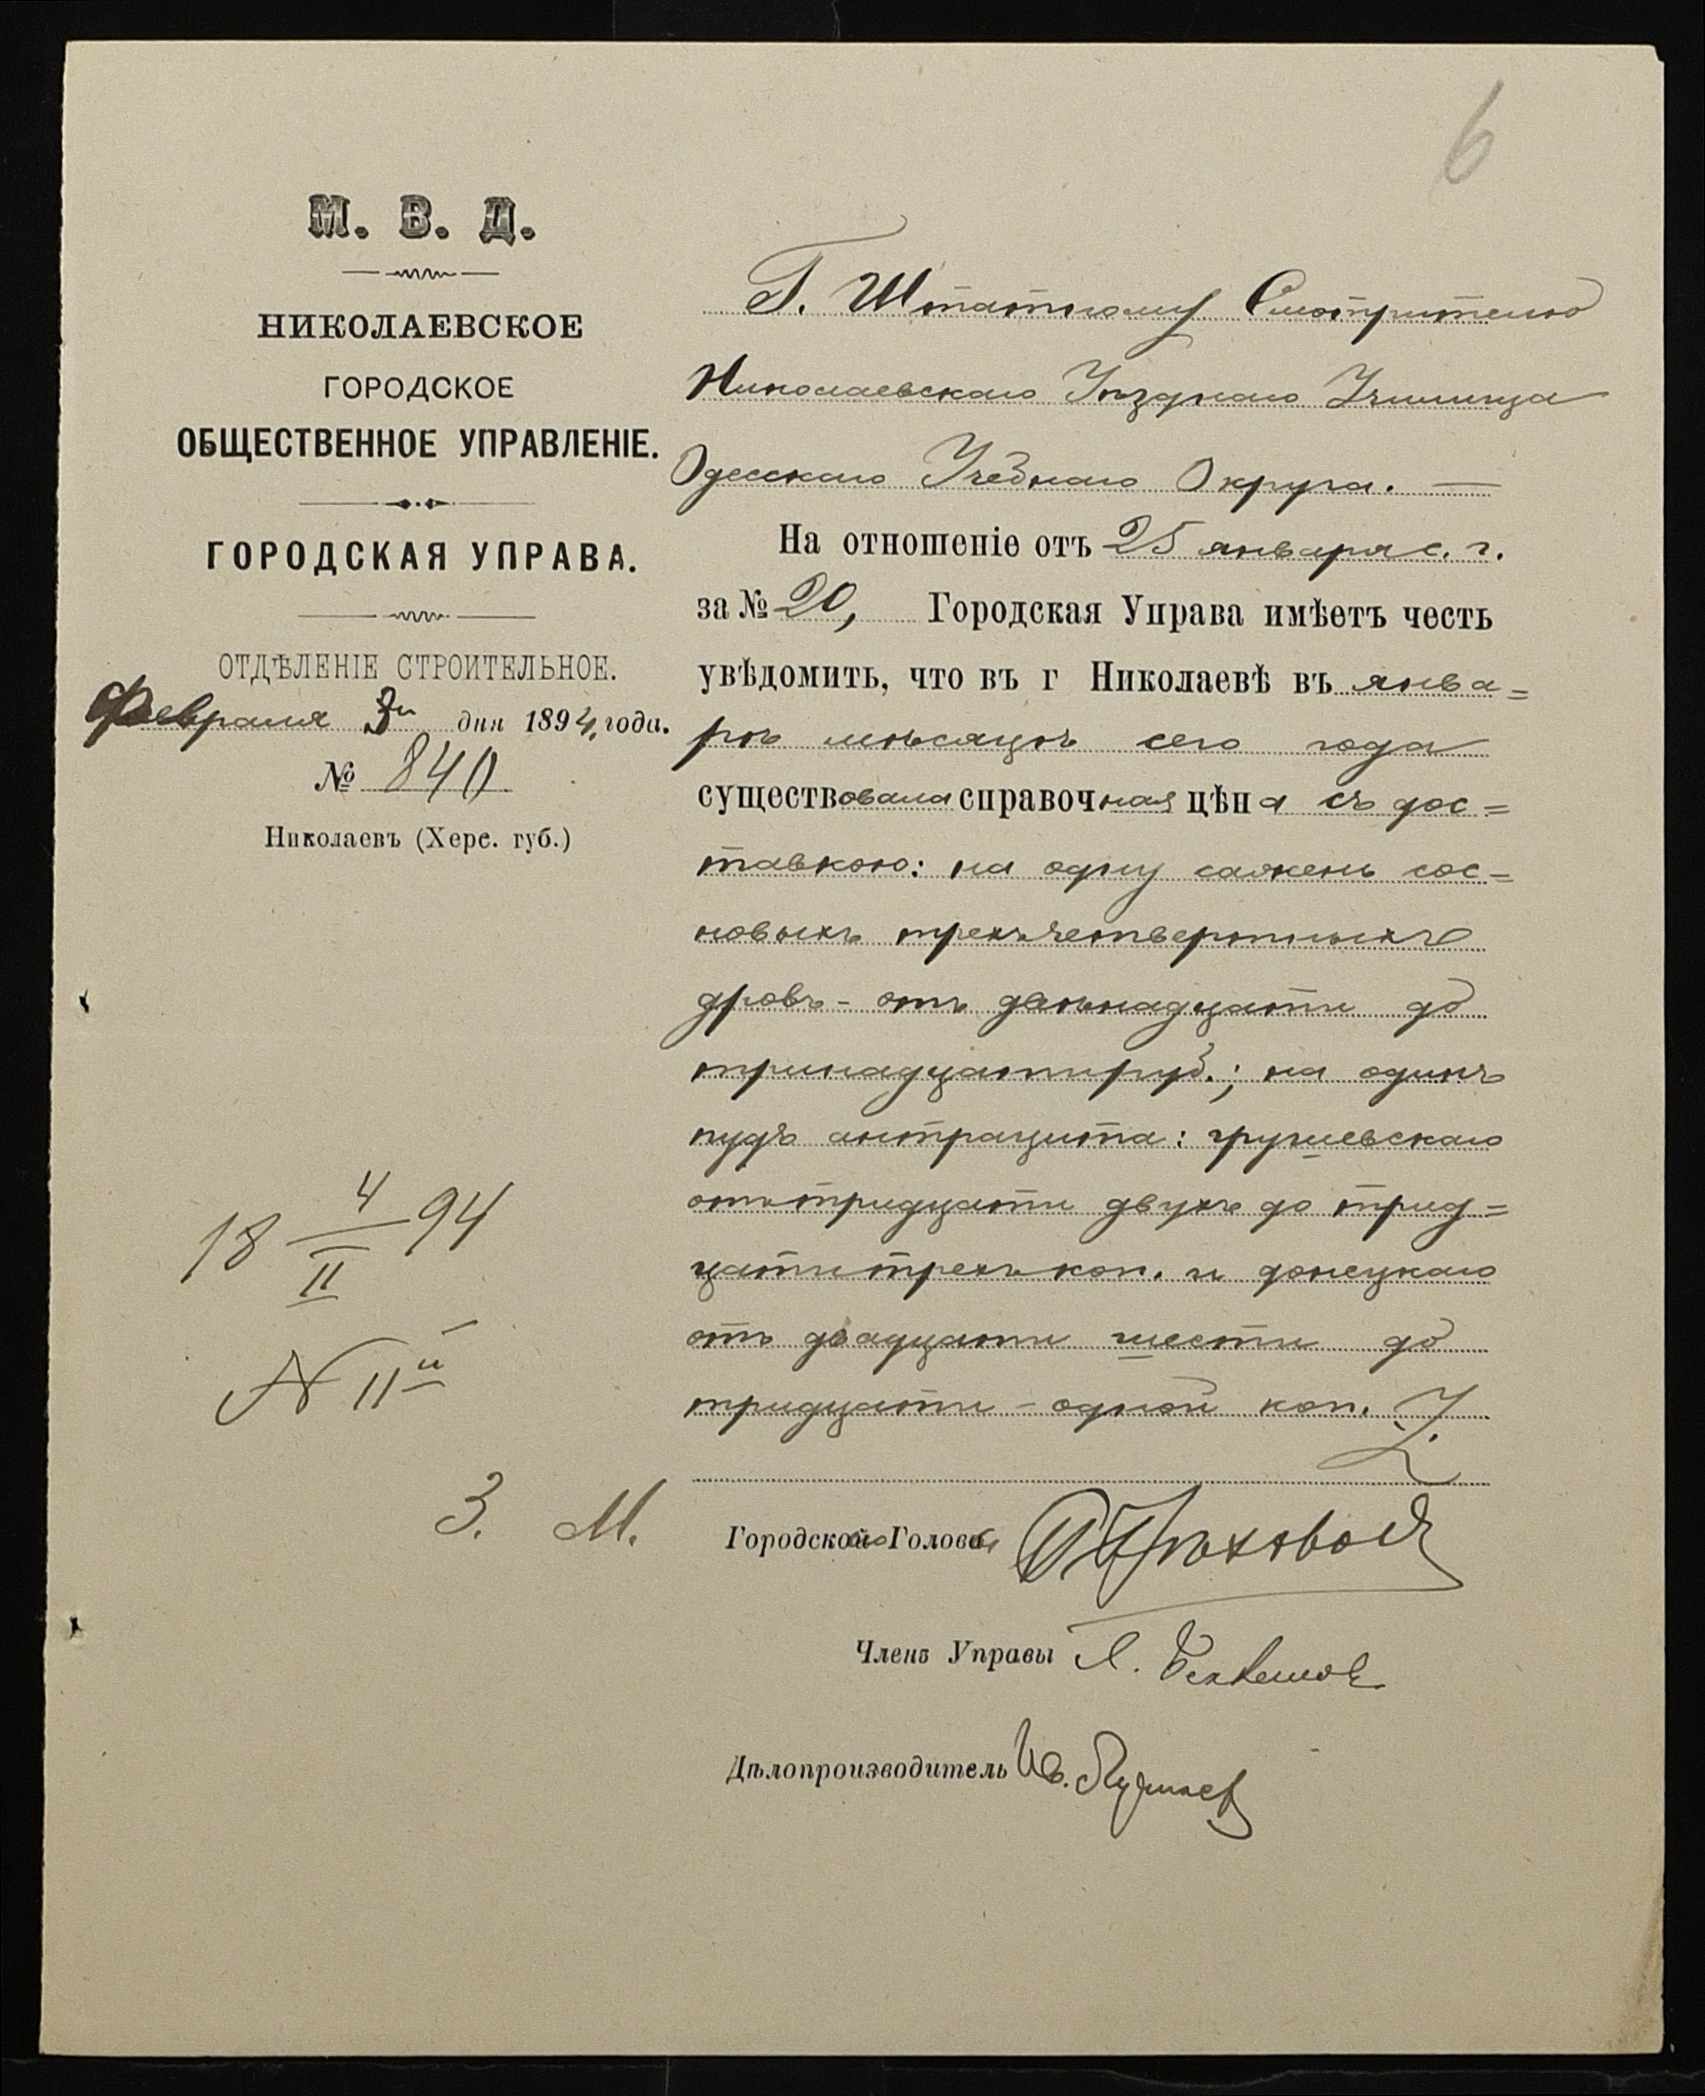 6
М. В. Д.
НИКОЛАЕВСКОЕ
ГОРОДСКОЕ
ОБЩЕСТВЕННОЕ УПРАВЛЕНІЕ.
ГОРОДСКАЯ УПРАВА.
ОТДѢЛЕНІЕ СТРОИТЕЛЬНОЕ.
Февраля 3го дня 1894 года.
№ 840
Николаевъ (Херс. губ.)
18 4/II 94
N 11й
Г. Штатному Смотрителю
Николаевскаго Уѣзднаго Училища
Одесскаго Учебнаго Округа. —
На отношеніе отъ 25 января с. г.
за № 20, Городская Управа имѣетъ честь
увѣдомить, что въ г Николаевѣ въ янва=
рѣ мѣсяцѣ сего года
существовала справочная цѣна съ дос=
тавкою: на одну сажень сос=
новыхъ трехчетвертныхъ
дровъ - отъ двѣнадцати до
тринадцати руб.; на одинъ
пудъ антрацита: грушевскаго
отъ тридцати двухъ до трид=
цати трехъ коп. и донецкаго
отъ двадцати шести до
тридцати - одной коп.
З. М. Городского Головы
Членъ Управы
Дѣлопроизводитель Ив.